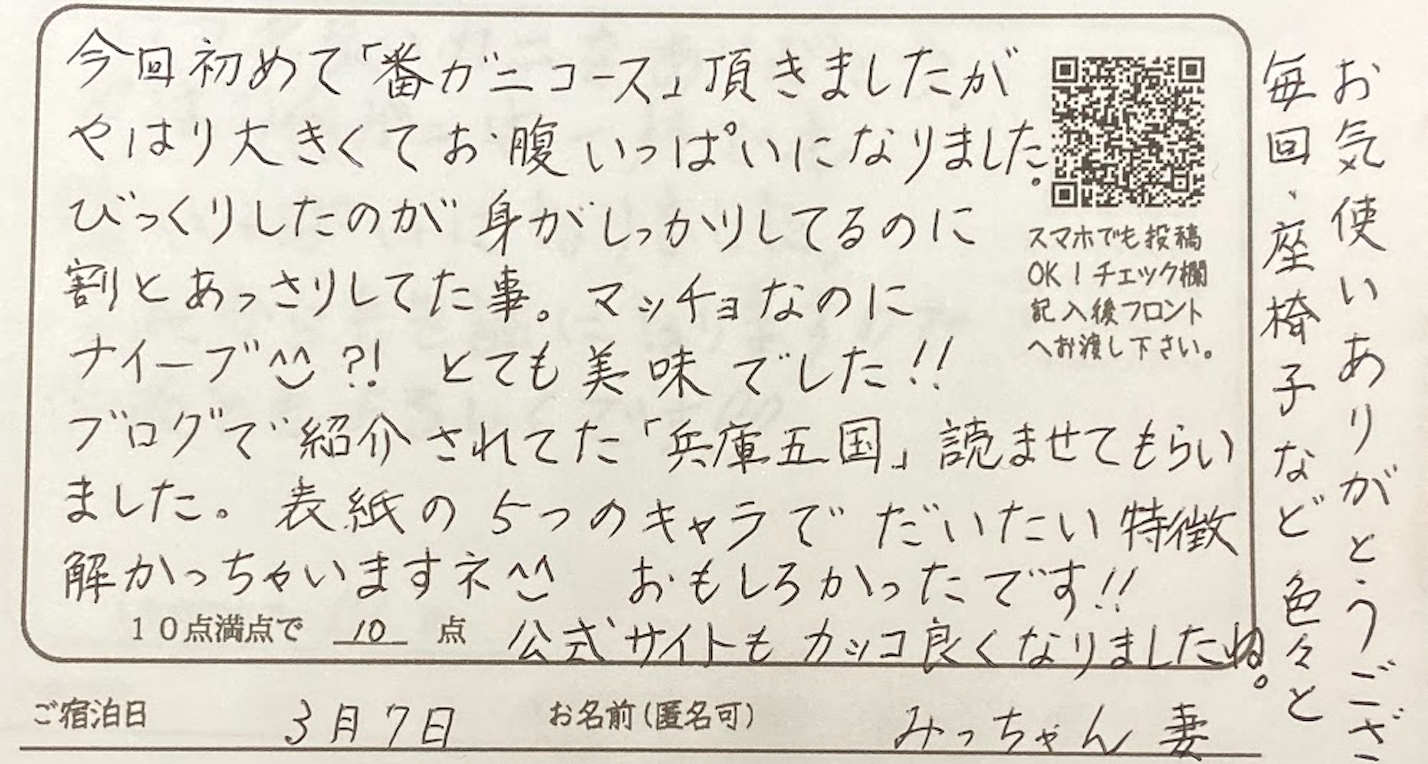 今回初めて「番ガニコース」頂きましたが
やはり大きくてお腹いっぱいになりました。
びっくりしたのが身がしっかりしてるのに
割とあっさりしてた事。マッチョなのに
ナイーブ^^?! とても美味でした!!
ブログで紹介されてた「兵庫五国」読ませてもらい
ました。表紙の5つのキャラでだいたい特徴
解かっちゃいますネ^^ おもしろかったです!!
公式サイトもカッコ良くなりましたね。
毎回、座椅子など色々と
お気使いありがとうござ
スマホでも投稿
OK!チェック欄
記入後フロント
へお渡し下さい。
10点満点で 10 点
ご宿泊日 3月7日 お名前(匿名可) みっちゃん 妻